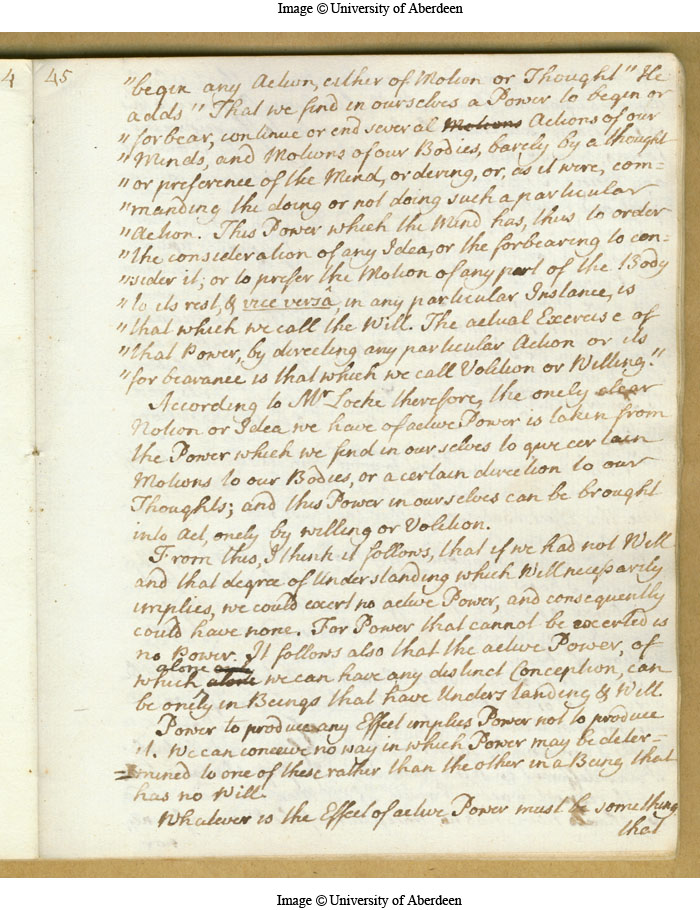 Image © University of Aberdeen
4
45
"begin any Action, either of Motion or Thought" He
adds "That we find in ourselves a Power to begin or
"forbear, continue or end several Motions Actions of our
"Minds, and Motions of our Bodies, barely by a thought
"or preference of the Mind, ordering, or, as it were, com=
"manding the doing or not doing such a particular
"Action. This Power which the Mind has, thus to order
"the consideration of any Idea, or the forbearing to con-
"sider it; or to prefer the Motion of any part of the Body
"to its rest, & vice versâ, in any particular Instance, is
"that which we call the Will. The actual Exercise of
"that Power, by directing any particular Action or its
"forbearance is that which we call Volition or Willing."
According to Mr Locke therefore, the onely clear
Notion or Idea we have of active Power is taken from
the Power which we find in ourselves to give certain
Motions to our Bodies, or a certain direction to our
Thoughts; and this Power in ourselves can be brought
into Act, onely by willing or Volition.
From this, I think it follows, that if we had not Will
and that degree of Understanding which Will necessarily
implies, we could exert no active Power, and consequently
could have none. For Power that cannot be exerted is
no Power. It follows also that the active Power, of
alone
which alone we can have any distinct Conception, can
be onely in Beings that have Understanding & Will
Power to produce any Effect implies Power not to produce
it. We can conceive no way in which Power may be deter=
=mined to one of these rather than the other in a Being that
has no Will.
Whatever is the Effect of active Power must be something
that
Image © University of Aberdeen